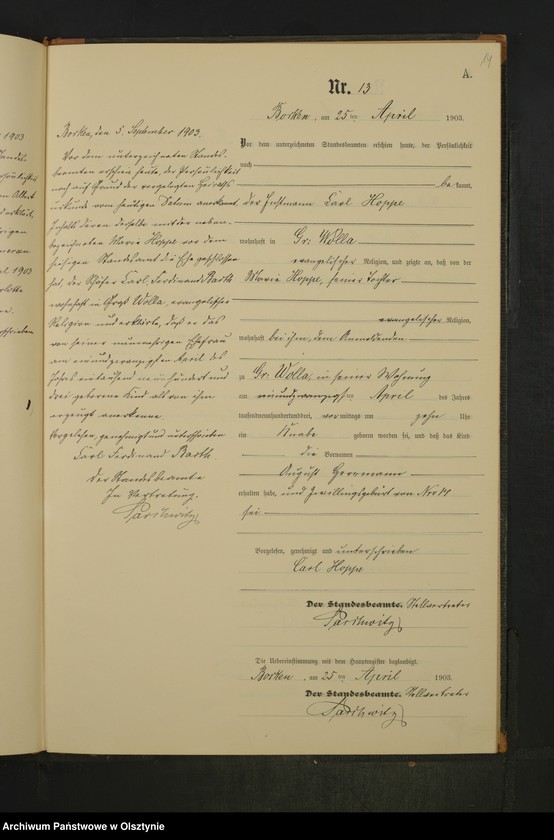 14
A.
Nr. 13
Borken, am 25 ten April 1903.
Vor dem unterzeichneten Standesbeamten erschien heute, der Persönlichkeit
nach
be kannt,
der Instmann Carl Hoppe
wohnhaft in Gr. Wolla
evangelischer Religion, und zeigte an, daß von der
Marie Hoppe, seiner Tochter
evangelischer Religion,
wohnhaft bei ihm, dem Anmeldenden
zu Gr. Wolla, in seiner Wohnung
am April des Jahres
tausendneunhundertunddrei, vor mittags um zehn Uhr
ein Knabe geboren worden sei, und daß das Kind
die Vornamen
August Herrmann
erhalten habe, und Zwillingsgeburt von Nro 14
sei
Vorgelesen, genehmigt und unterschrieben
Carl Hoppe
Der Standesbeamte. Stellvertreter
Die Uebereinstimmung mit dem Hauptregister beglaubigt.
Borken, am 25 ten April 1903.
Der Standesbeamte. Stellvertreter
Borken, den 5. September 1903.
Vor dem unterzeichneten Standes-
beamten erschien heute, der Persönlichkeit
nach auf Grund der vorgelegten Heirats
urkunde vom heutigen Datum anerkannt,
Inhalts deren derselbe mit der neben-
bezeichneten Marie Hoppe vor dem
hiesigen Standesamt die Ehe geschlossen
hat, der Schäfer Carl Ferdinand Barth
wohnhaft in Groß Wolla, evangelischer
Religion und erklärte, daß er das
von seiner nunmehrigen Ehefrau
am April des
Jahres eintausend neunhundert und
drei geborene Kind als von ihm
erzeugt anerkenne.
Vorgelesen, genehmigt und unterschrieben
Carl Ferdinand Barth.
Der Standesbeamte
In Vertretung.
Archiwum Państwowe w Olsztynie